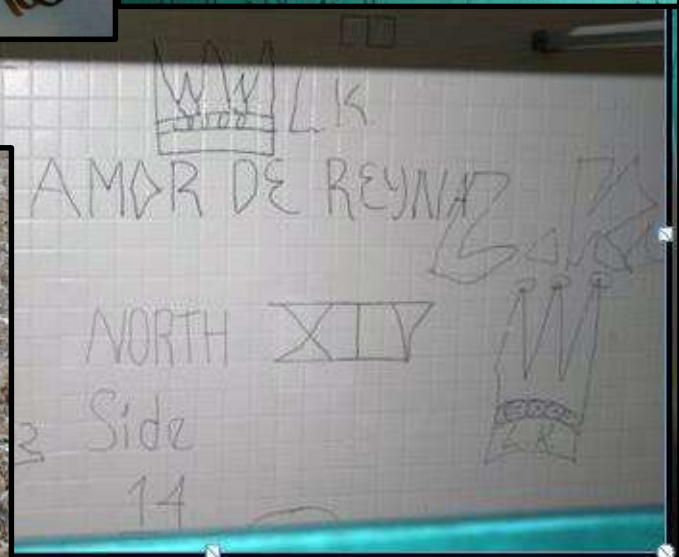 L K
AMOR DE REYNA
L.K.
NORTH XIV
Side
14
L K